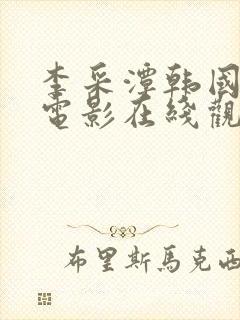 李采潭韩國
電影在綫觀
布里斯馬克西